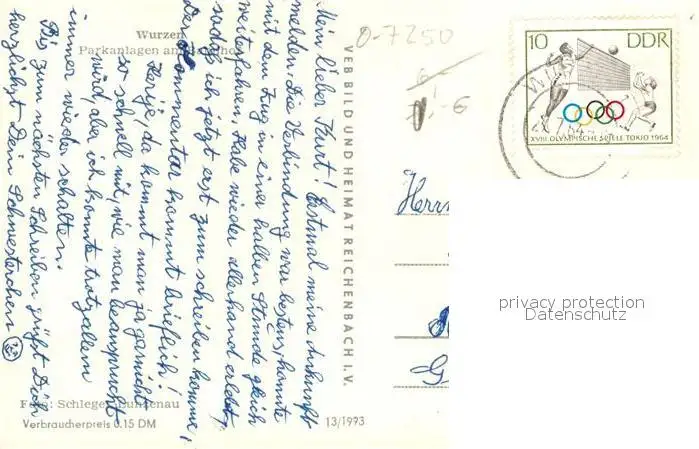 Wurzen
Parkanlagen am
0-7250
Mein lieber Kurt! Erstmal meine Ankunft
melden. Die Verbindung war bestens, konnte
mit dem Zug in einer halben Stunde gleich
weiterfahren. Habe wieder allerhand erlebt,
sodaß ich jetzt erst zum schreiben komme,
Der Kommentar kommt brieflich!
Herrje, da kommt man ja garnicht
so schnell mit, wie man beansprucht
wird, aber ich konnte trotzallem
immer wieder schalten.
Bis zum nächsten Schreiben grüßt Dich
herzlichst Dein Schwesterchen
Foto: Schlegel,
Verbraucherpreis 0.15 DM
13/1993
VEB BILD UND HEIMAT REICHENBACH I. V.
Herrn
G
10 DDR
XVIII. OLYMPISCHE SPIELE TOKIO 1964
privacy protection
Datenschutz